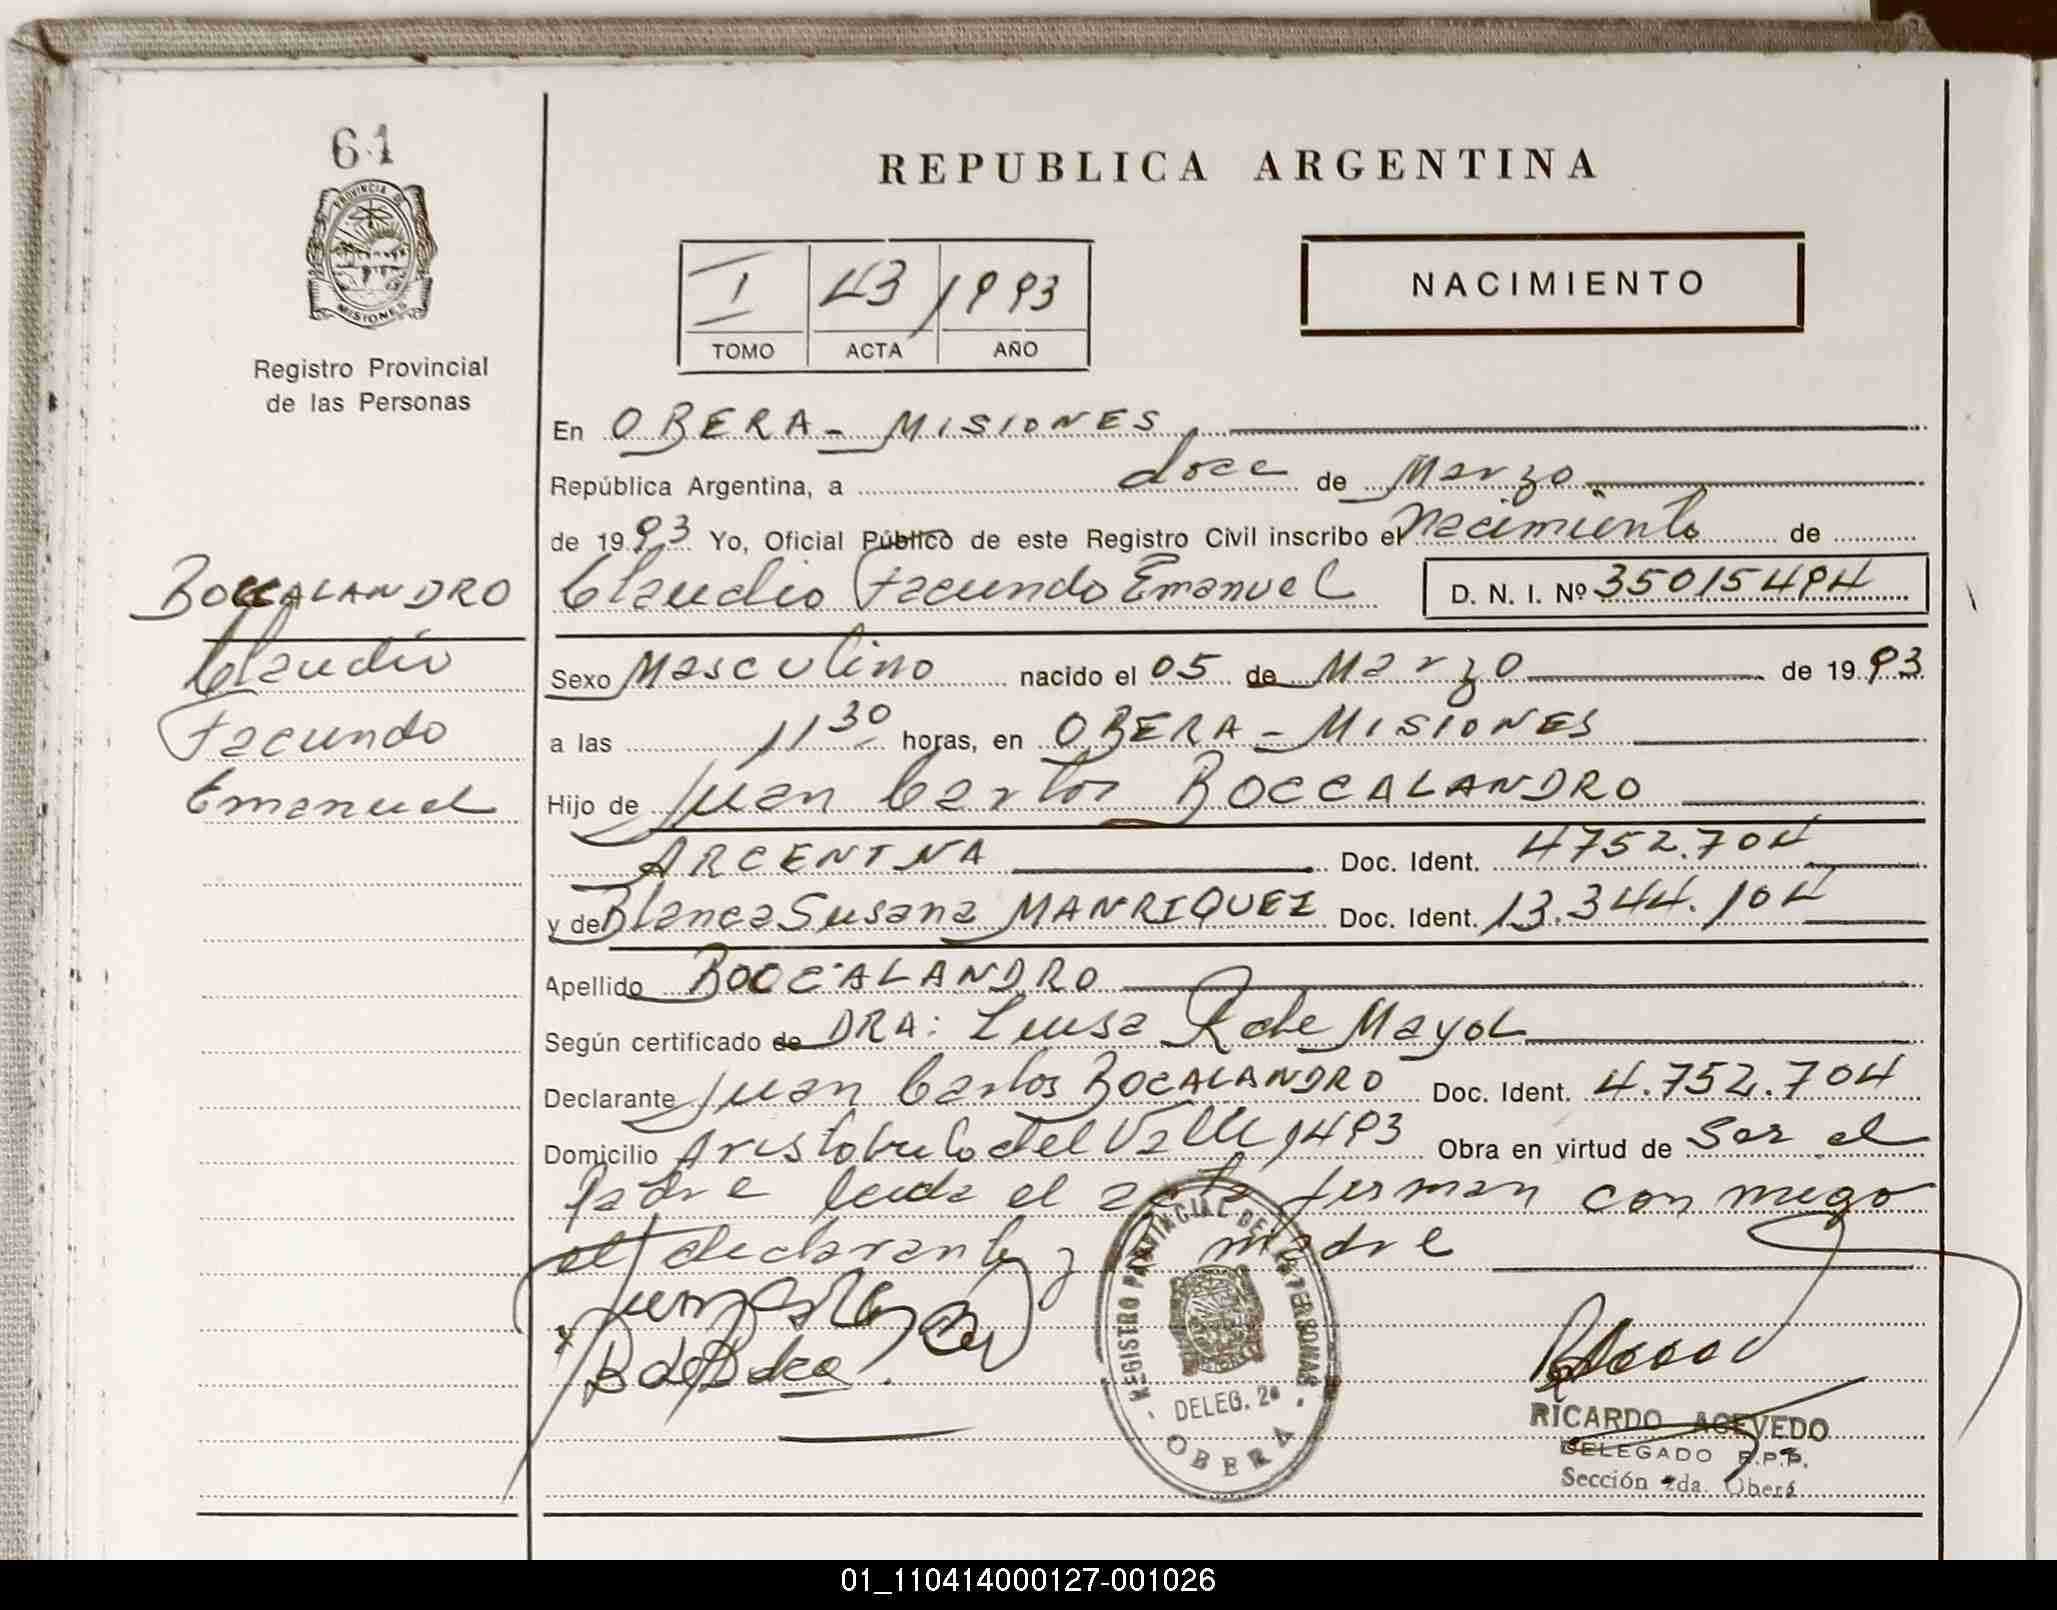 61
PROVINCIA DE
MISIONES
Registro Provincial
de las Personas
BOCCALANDRO
Claudio
Facundo
Emanuel
REPUBLICA ARGENTINA
I 43 1993
TOMO ACTA AÑO
NACIMIENTO
En OBERA - MISIONES
República Argentina, a doce de Marzo
de 1993 Yo, Oficial Público de este Registro Civil inscribo el Nacimiento de
Claudio Facundo Emanuel D. N. I. Nº 35015494
Sexo Masculino nacido el 05 de Marzo de 1993
a las 11 30 horas, en OBERA - MISIONES
Hijo de Juan Carlos BOCCALANDRO
ARGENTINA Doc. Ident. 4752.704
y de Blanca Susana MANRIQUEZ Doc. Ident. 13.344.104
Apellido BOCCALANDRO
Según certificado de DRA: Luisa R de Mayol
Declarante Juan Carlos BOCALANDRO Doc. Ident. 4.752.704
Domicilio Aristobulo del Valle 1493 Obra en virtud de Ser el
Padre leida el acta firman conmigo
el declarante y la madre
REGISTRO PROVINCIAL DE LAS PERSONAS
DELEG. 2ª
OBERA
RICARDO ACEVEDO
DELEGADO R.P.P.
Sección 2da. Oberá
01_110414000127-001026